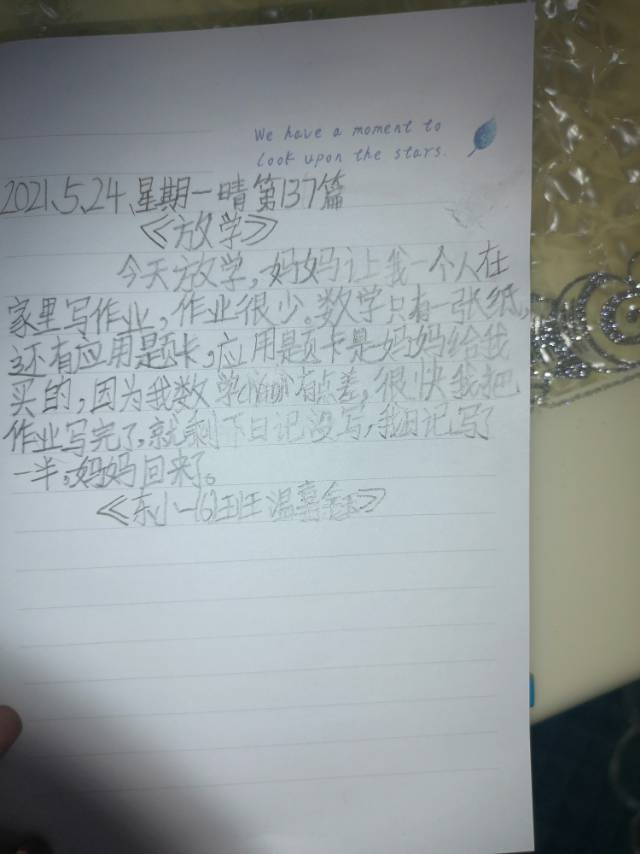 We have a moment to
look upon the stars.
2021.5.24.星期一晴第137篇
《放学》
今天放学,妈妈让我一个人在
家里写作业,作业很少。数学只有一张纸,
还有应用题卡,应用题卡是妈妈给我
买的,因为我数学 有点差,很快我把
作业写完了,就剩下日记没写,我日记写了
一半,妈妈回来了。
《东小一(6)班 温嘉